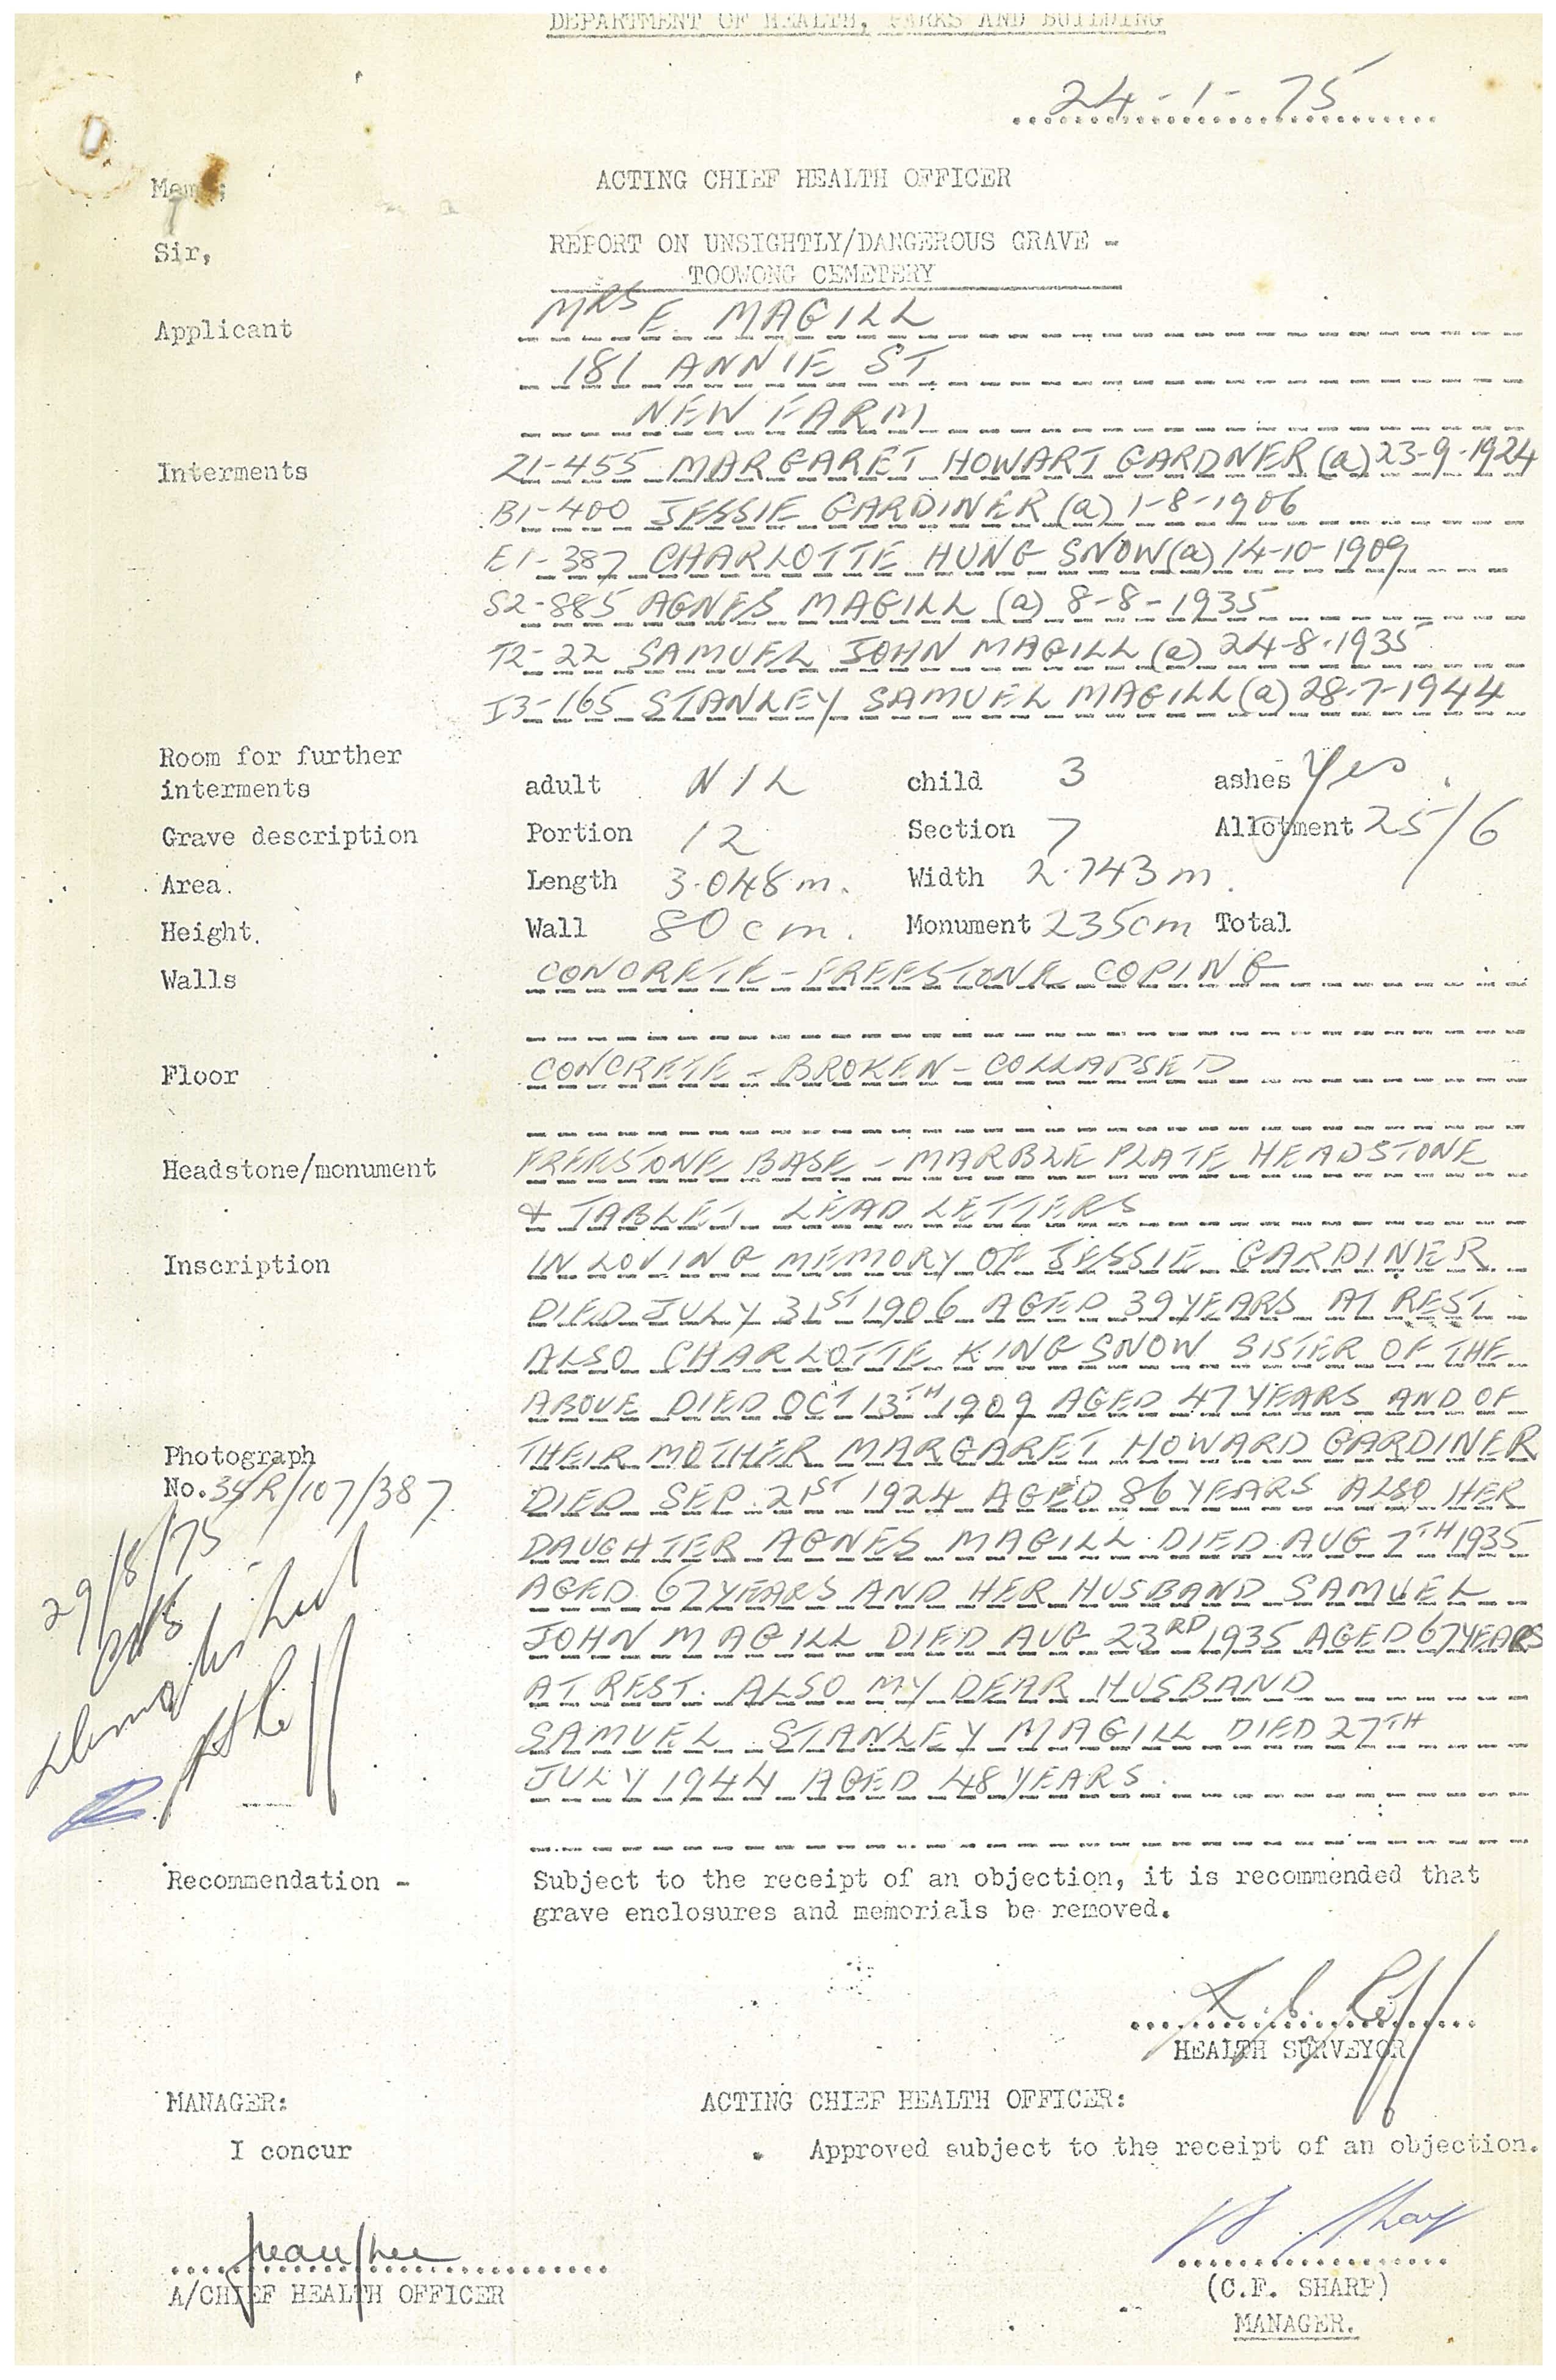 DEPARTMENT OF HEALTH, PARKS AND BUILDING
24-1-75
Memo: ACTING CHIEF HEALTH OFFICER
Sir, REPORT ON UNSIGHTLY/DANGEROUS GRAVE -
TOOWONG CEMETERY
Applicant MRS E. MAGILL
181 ANNIE ST
NEW FARM
Interments Z1-455 MARGARET HOWART GARDNER (a) 23-9-1924
B1-400 JESSIE GARDINER (a) 1-8-1906
E1-387 CHARLOTTE HUNG SNOW (a) 14-10-1909
S2-885 AGNES MAGILL (a) 8-8-1935
T2-22 SAMUEL JOHN MAGILL (a) 24-8-1935
I3-165 STANLEY SAMUEL MAGILL (a) 28-7-1944
Room for further
interments adult NIL child 3 ashes Yes.
Grave description Portion 12 Section 7 Allotment 25/6
Area. Length 3.048m. Width 2.743m.
Height. Wall 80cm. Monument 235cm Total
Walls CONCRETE - FREESTONE COPING
Floor CONCRETE - BROKEN - COLLAPSED
Headstone/monument FREESTONE BASE - MARBLE PLATE HEADSTONE
& TABLET LEAD LETTERS
Inscription IN LOVING MEMORY OF JESSIE GARDINER
DIED JULY 31ST 1906 AGED 39 YEARS AT REST
ALSO CHARLOTTE KING SNOW SISTER OF THE
ABOVE DIED OCT 13TH 1909 AGED 47 YEARS AND OF
Photograph THEIR MOTHER MARGARET HOWARD GARDINER
No. 34R/107/387 DIED SEP. 21ST 1924 AGED 86 YEARS ALSO HER
DAUGHTER AGNES MAGILL DIED AUG 7TH 1935
29/8/75 AGED 67 YEARS AND HER HUSBAND SAMUEL
JOHN MAGILL DIED AUG 23RD 1935 AGED 67 YEARS
AT REST. ALSO MY DEAR HUSBAND
Demolished SAMUEL STANLEY MAGILL DIED 27TH
JULY 1944 AGED 48 YEARS.
Recommendation - Subject to the receipt of an objection, it is recommended that
grave enclosures and memorials be removed.
HEALTH SURVEYOR
MANAGER: ACTING CHIEF HEALTH OFFICER:
I concur Approved subject to the receipt of an objection.
A/CHIEF HEALTH OFFICER
(C.F. SHARP)
MANAGER.